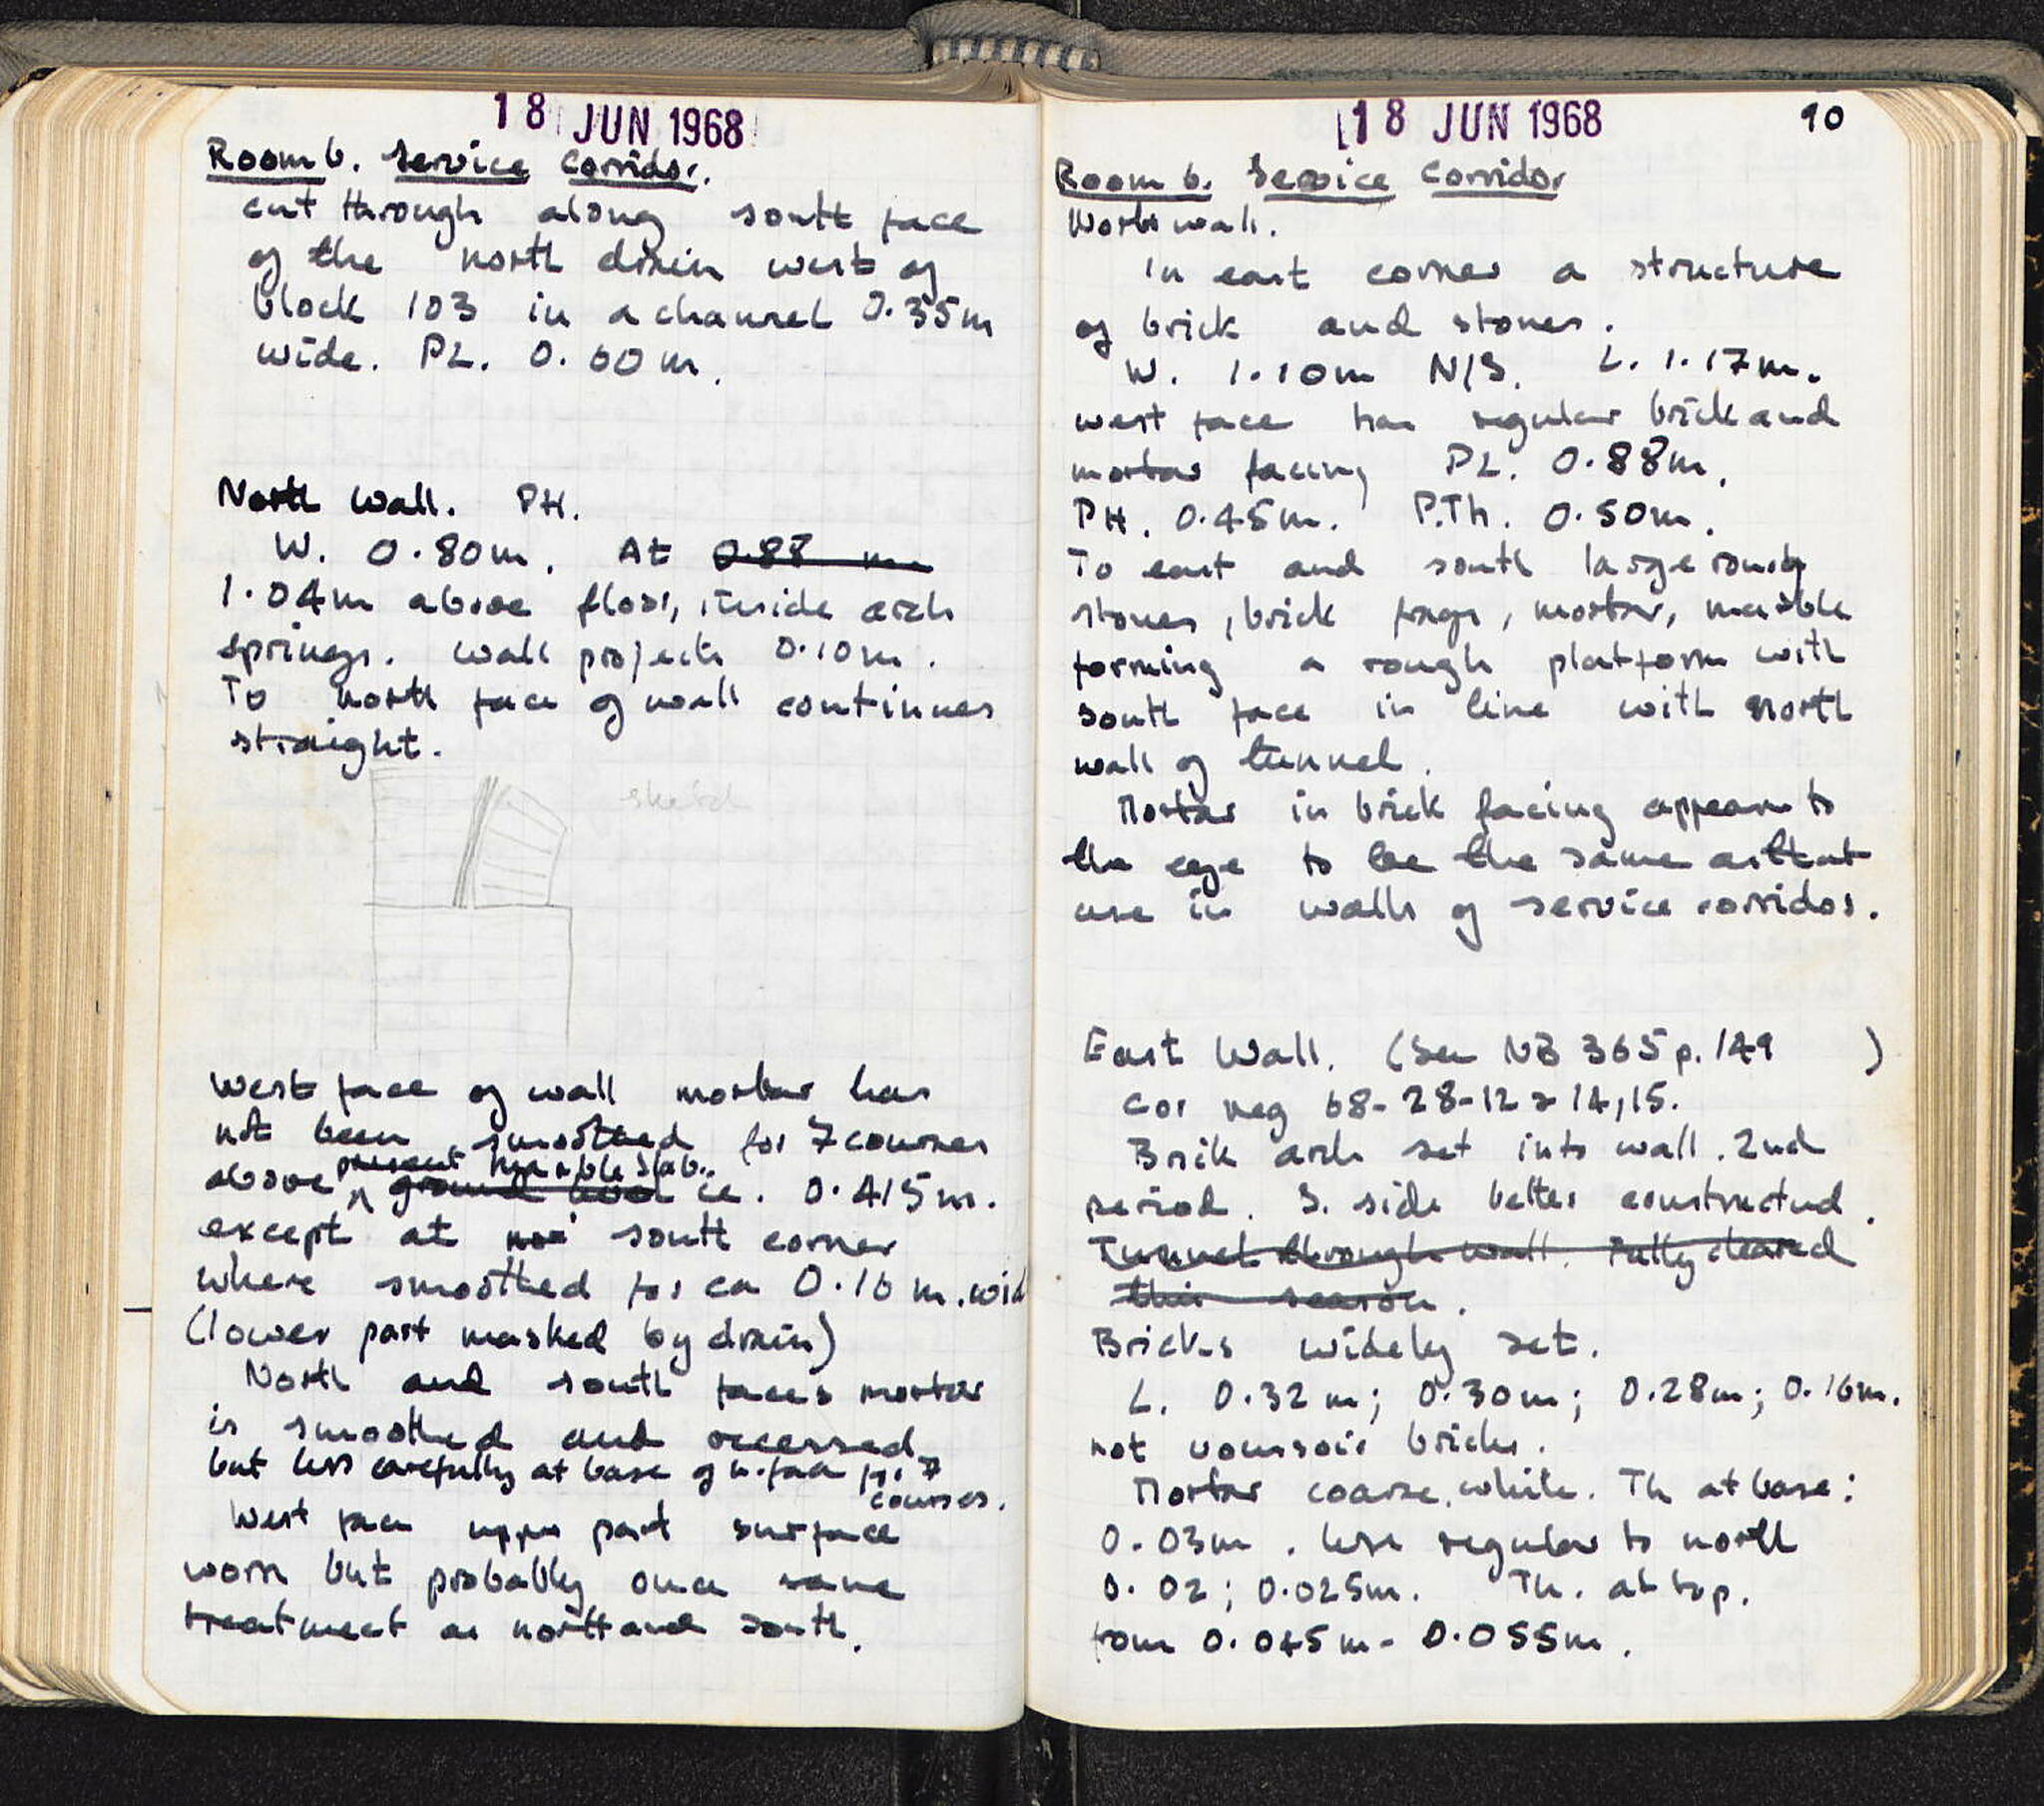 18 JUN 1968
Room 6. Service Corridor.
cut through along south face
of the north drain west of
block 103 in a channel 0.35m
wide. PL. 0.60m.
North Wall. PH.
W. 0.80m. At 0.88 m
1.04m above floor, inside arch
springs. Wall projects 0.10m.
To north face of wall continues
straight.
sketch
West face of wall mortar has
not been smoothed for 7 courses
present marble slab..
above ^ ground level ie. 0.415m.
except at south corner
where smoothed for ca 0.16 m. wid
(lower part masked by drain)
North and south faces mortar
is smoothed and recessed
but less carefully at base of n. face for 7
courses.
West face upper part surface
worn but probably once same
treatment as north and south.
18 JUN 1968
90
Room 6. Service Corridor
North wall.
In east corner a structure
of brick and stones.
W. 1.10m N/S. L. 1.17m.
west face has regular brick and
mortar facing PL. 0.88m.
PH. 0.45m. P.Th. 0.50m.
To east and south large rough
stones, brick frags, mortar, marble
forming a rough platform with
south face in line with north
wall of tunnel.
Mortar in brick facing appears to
the eye to be the same as that
use in walls of service corridor.
East Wall. (See NB 365 p. 149 )
Cor neg 68-28-12 & 14, 15.
Brik arch set into wall. 2nd
period. S. side better constructed.
Tunnel through wall. Fully cleared
this season.
Bricks widely set.
L. 0.32m; 0.30m; 0.28m; 0.16m.
not voussoir bricks.
Mortar coarse, white. Th at base:
0.03m. less regular to north
0.02; 0.025m. Th. at top.
from 0.045m - 0.055m.